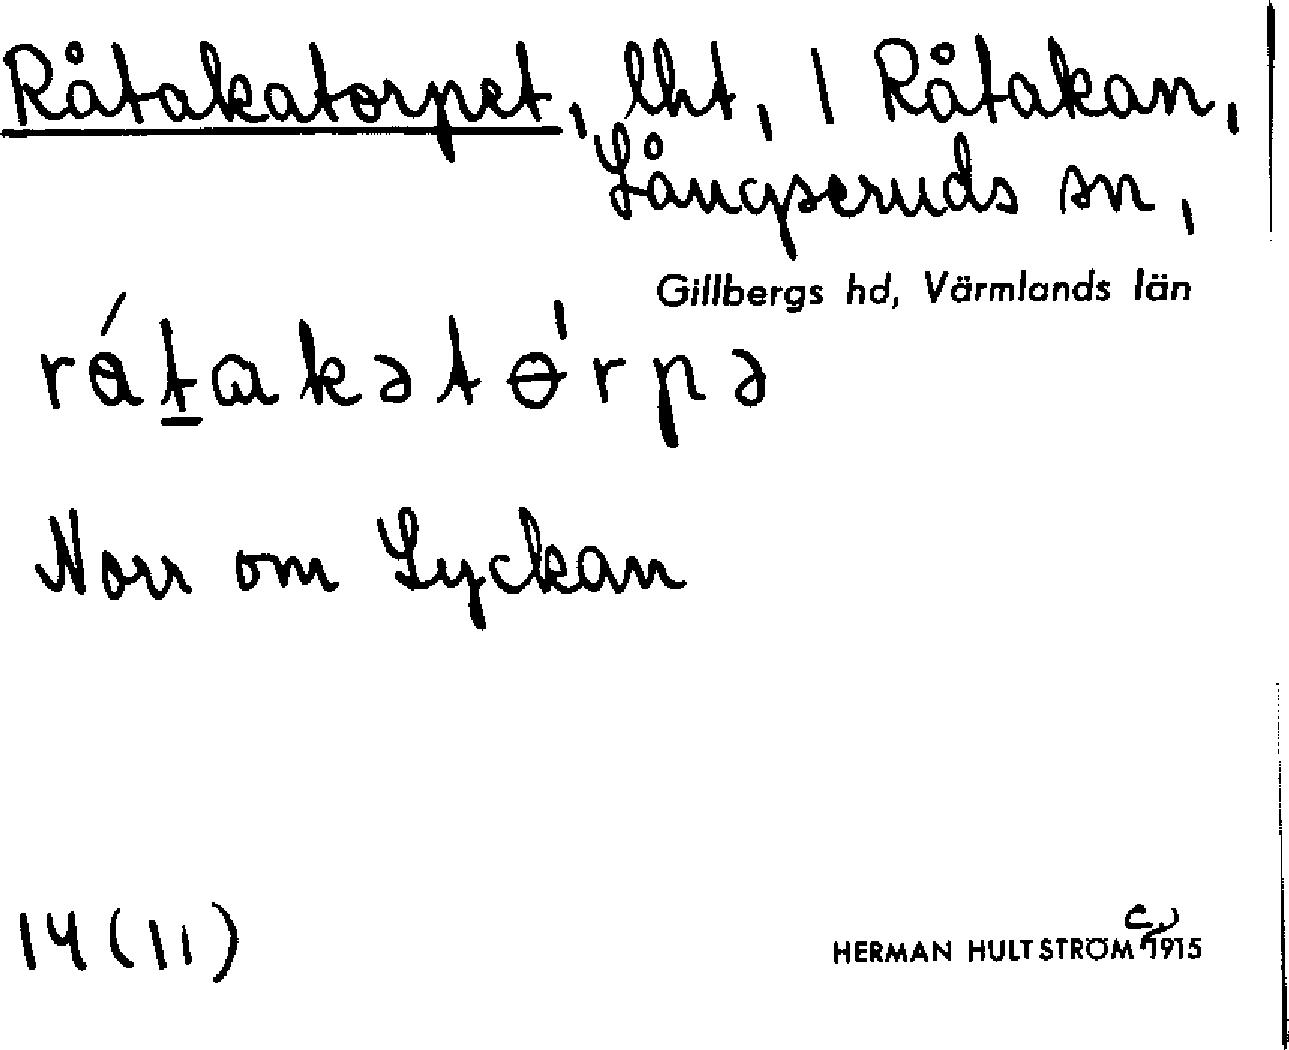 Råtakatorpet, lht, 1 Råtakan,
Långseruds sn,
Gillbergs hd, Värmlands län
rátakətɵ́rpə
Norr om Lyckan
14 (11)
HERMAN HULTSTRÖM c. 1915